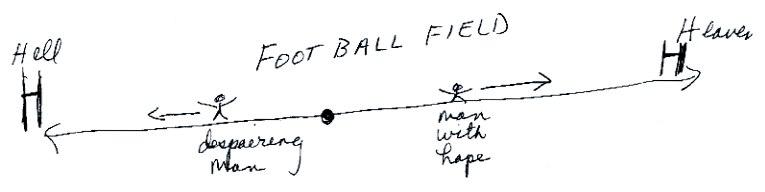 Hell
FOOTBALL FIELD
Heaven
despairing
man
man
with
hope